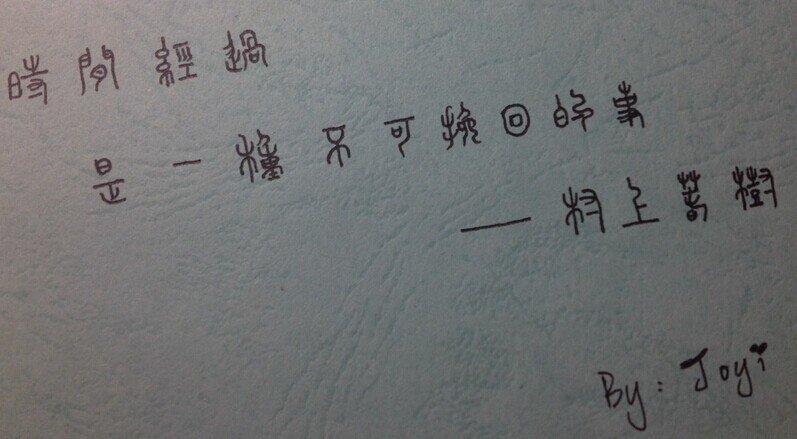 時間經過
是一種不可挽回的事
——村上春樹
By: Joyi